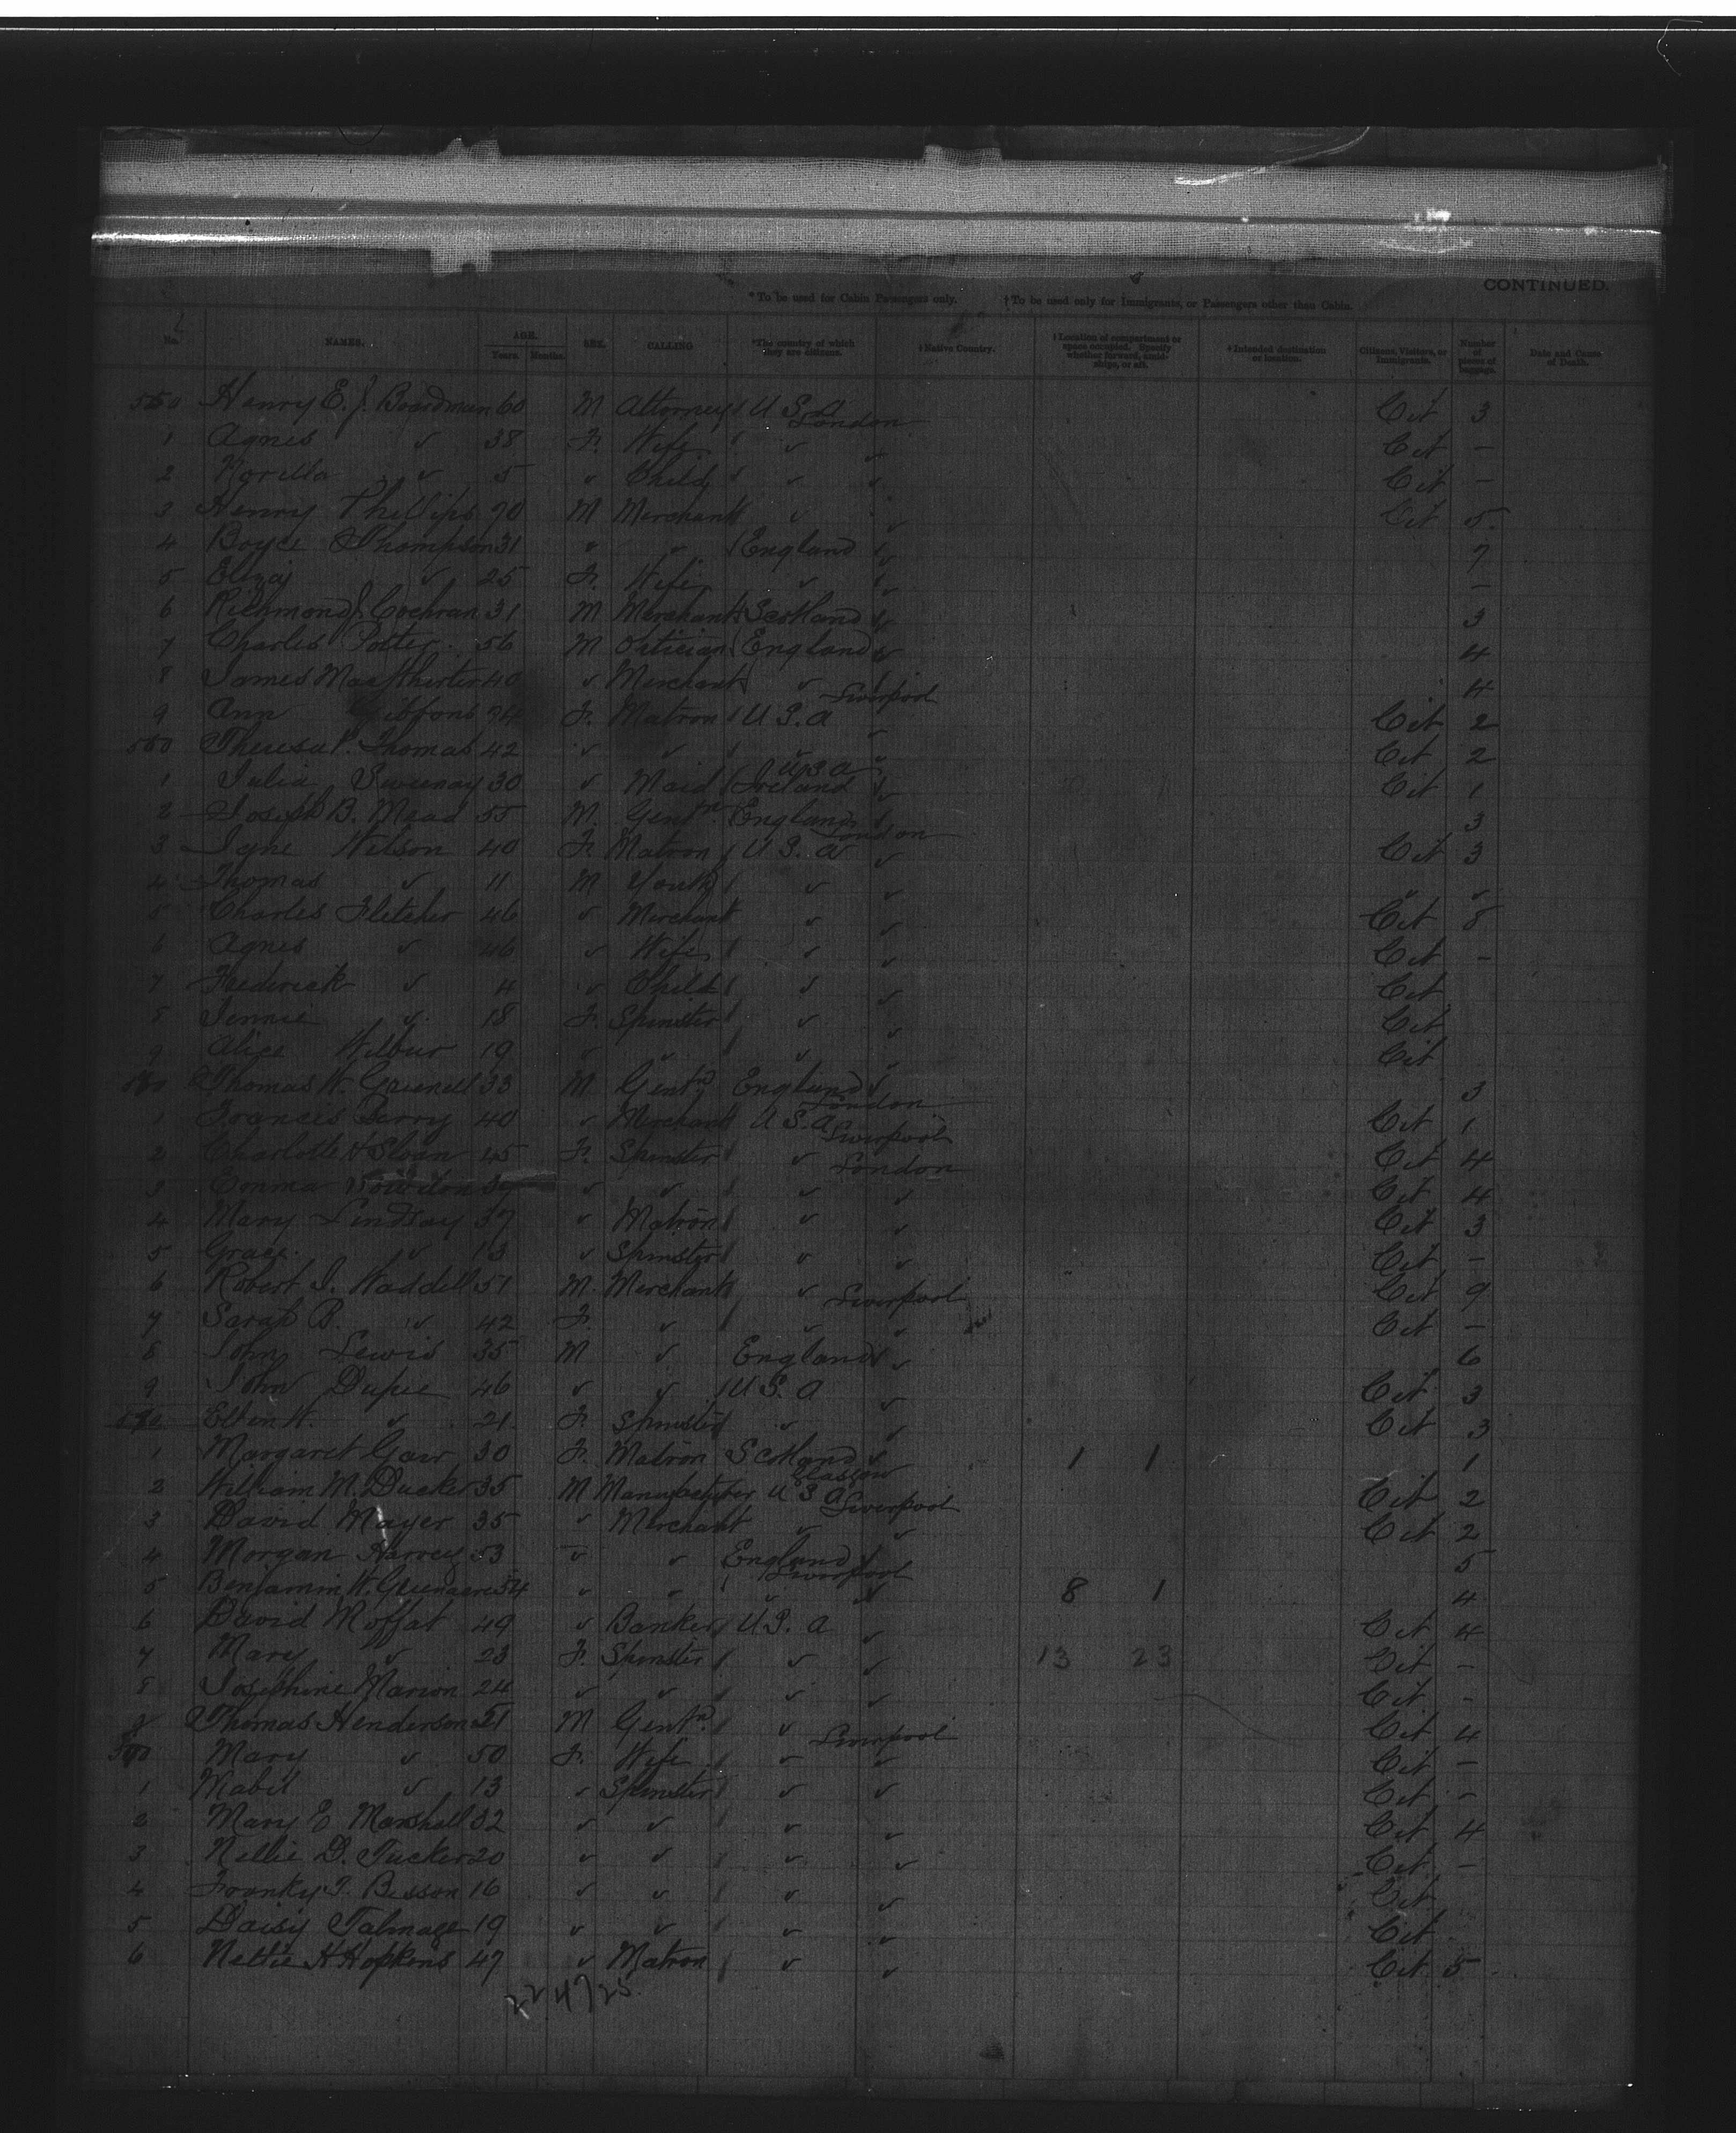 CONTINUED.
*To be used for Cabin Passengers only. †To be used only for Immigrants, or Passengers other than Cabin.
No. NAMES. AGE. Years. Months. SEX. CALLING *The country of which they are citizens. †Native Country. †Location of compartment or space occupied. Specify whether forward, amidships, or aft. †Intended destination or location. Citizens, Visitors, or Immigrants. Number of pieces of baggage. Date and Cause of Death.
550 Henry E. J. Boardman 60 M Attorney U S A London Cit 3
1 Agnes " 38 F. Wife " " Cit -
2 " 5 " Child " " Cit -
3 Henry Phillips 70 M Merchant " " Cit 5
4 Boyce Thompson 31 " " England " 7
5 Eliza " 25 F. Wife " " -
6 Richmond J. Cochran 31 M Merchant Scotland " 3
7 Charles Potter 56 M Optician England " 4
8 James 40 " Merchant " Liverpool 4
9 Ann Gibbons F. Matron U S. A " Cit 2
560 Theresa P. Thomas 42 " " " " Cit 2
1 Julia Sweeney 30 " Maid U S A Ireland " Cit 1
2 Joseph B. Mead 55 M. Gentn England London 3
3 Jane Wilson 40 F. Matron U S. A " Cit 3
4 Thomas " 11 M Youth " " " "
5 Charles Fletcher 46 " Merchant " " Cit 8
6 Agnes " 46 " Wife " " Cit -
7 Frederick " 4 " Child " " Cit
8 Jennie " 18 F. Spinster " " Cit
9 Alice Wilbur 19 " " " " Cit
Thomas W. 33 M Gentn England London 3
1 Frances Perry 40 " Merchant U S. A Liverpool Cit 1
2 Charlotte H Sloan 45 F. Spinster " London Cit 4
3 Emma " " " " Cit 4
4 Mary Lindsay 37 " Matron " " Cit 3
5 Grace " 13 " Spinster " " Cit -
6 Robert J. Waddell 51 M. Merchant " Liverpool Cit 9
7 Sarah B. " 42 F. " " " Cit -
8 John Lewis 35 M " England " 6
9 John Dupee 46 " " U S. A " Cit 3
" 21 F. Spinster " " Cit 3
1 Margaret Gaw 30 F. Matron Scotland Glasgow 1 1 1
2 William M. Ducker 35 M Manufacturer U S A Liverpool Cit 2
3 David Mayer 35 " Merchant " " Cit 2
4 Morgan Harvey 53 " " England Liverpool 5
5 Benjamin W. Greenacre 54 " " " " 8 1 4
6 David Moffat 49 " Banker U S. A " Cit 4
7 Mary " 23 F. Spinster " " 13 23 Cit -
8 Josephine Marion 24 " " " " Cit -
9 Thomas Henderson 51 M Gentn " Liverpool Cit 4
590 Mary " 50 F. Wife " " Cit -
1 Mabel " 13 " Spinster " " Cit -
2 Mary E Marshall 32 " " " " Cit 4
3 Nellie D. Tucker 20 " " " " Cit -
4 Bisson 16 " " " " Cit
5 Daisy Talmage 19 " " " " Cit
6 Nettie H Hopkins 47 " Matron " " Cit 5